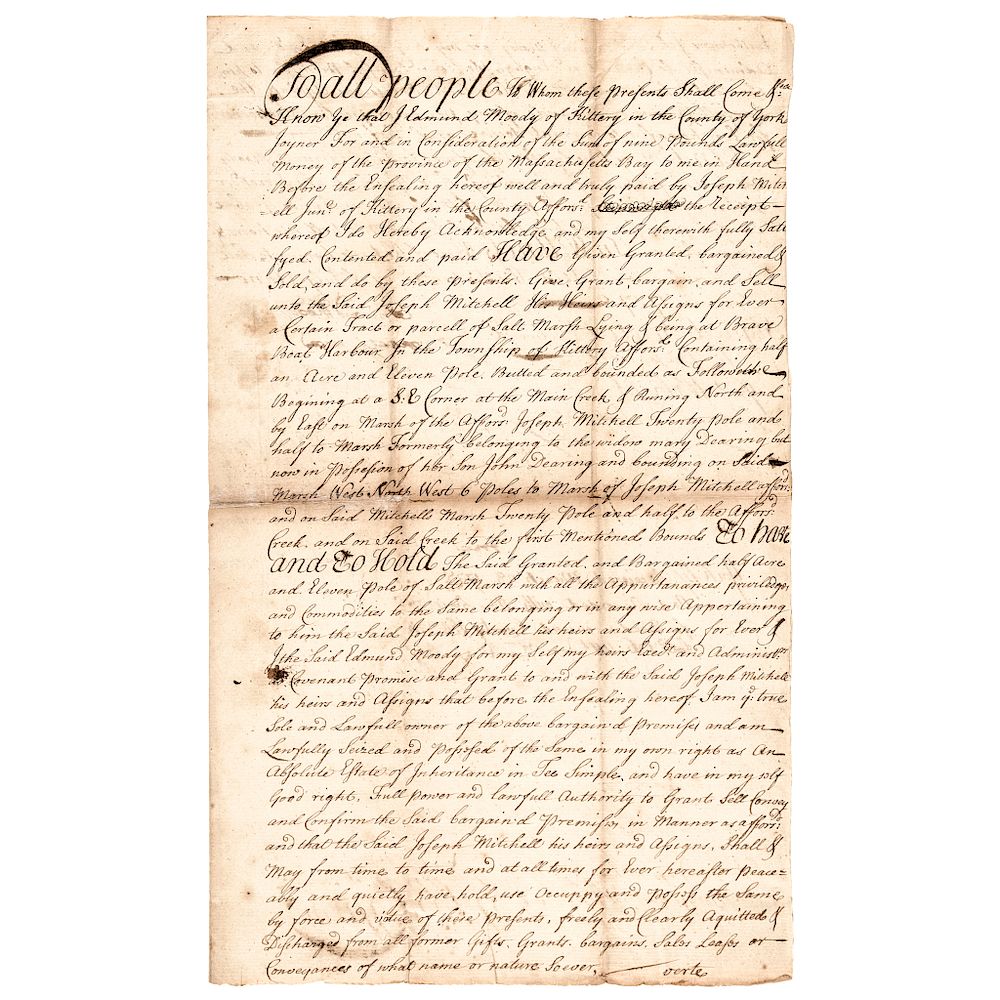 To all people To Whom these Presents Shall Come &ca:
Know Ye that I Edmund Moody of Kittery in the County of York
Joyner For and in Consideration of the Sum of nine Pounds Lawfull
Money of the Province of the Massachusetts Bay to me in Hand
Before the Ensealing hereof well and truly paid by Joseph Mitch
=ell Junr. of Kittery in the County Afforsd. the Receipt
whereof I do Hereby Acknowledge and my Self therewith fully Satis
fyed, Contented and paid Have Given Granted, bargained &
Sold, and do by these Presents. Give, Grant, bargain, and Sell
unto the Said Joseph Mitchell His Heirs and Asigns for Ever
a Certain Tract or parcell of Salt Marsh Lying & being at Brave
Boat Harbour In the Township of Kittery Afforsd. Containing half
an Acre and Eleven Pole. Butted and bounded as Followeth
Begining at a S:E Corner at the Main Creek & Runing North and
by East on Marsh of the Afforsd. Joseph Mitchell Twenty Pole and
half to Marsh Formerly belonging to the widow mary Dearing but
now in Possesion of her Son John Dearing and bounding on Said
Marsh West North West 6 Poles to Marsh of Joseph Mitchell afforsd:
and on Said Mitchells Marsh Twenty Pole and half to the Afforsd:
Creek, and on Said Creek to the first Mentioned Bounds To have
and To Hold The Said Granted, and Bargained half Acre
and Eleven Pole of Salt Marsh with all the Appurtanances priviledges
and Commodities to the Same belonging or in any wise Appertaining
to him the Said Joseph Mitchell his heirs and Assigns for Ever &
I the Said Edmund Moody for my Self my heirs Exedrs and Administrs.
do Covenant Promise and Grant to and with the Said Joseph Mitchell
his heirs and Assigns that before the Ensealing hereof I am ye: true
Sole and Lawfull owner of the above bargain'd Premises and am
Lawfully Seized and Possesed of the Same in my own right as An
Absolute Estate of Inheritance in Fee Simple, and have in my self
Good right, Full Power and lawfull Authority to Grant Sell Convey
and Confirm the Said bargain'd Premises, in Manner as afforsd:
and that the Said Joseph Mitchell his heirs and Assigns, Shall &
May from time to time and at all times for Ever hereafter Peace=
ably and quietly have, hold, use Occuppy and Possess the Same
by force and vertue of these Presents, freely and Clearly Aquitted &
Discharged from all former Gifts, Grants, bargains, Sales Leases or
Conveyances of what name or nature Soever, verte